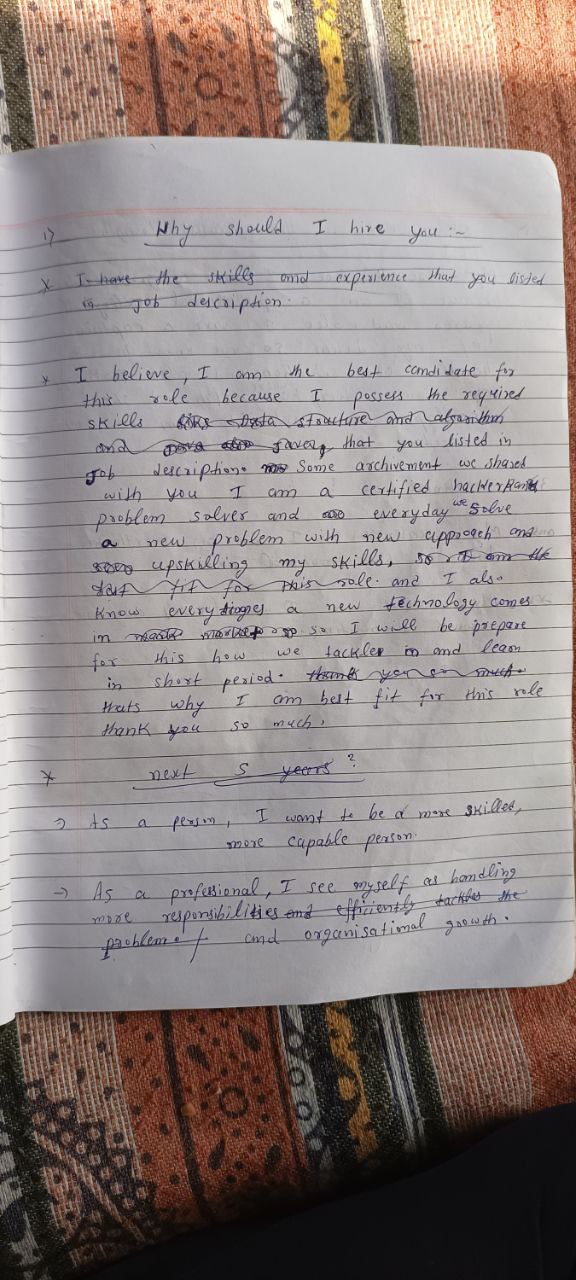 1) Why should I hire you :~
* I have the skills and experience that you listed
in Job description.
* I believe, I am the best candidate for
this role because I possess the required
skills like Data structure and algorithm
and java, that you listed in
Job description. Some archivement we shared
with you I am a certified hackerRank
problem solver and everyday we solve
a new problem with new approach and
upskilling my skills, so I am the
best fit for this role. and I also
know every a new technology comes
in market so I will be prepare
for this how we tackle and learn
in short period. thank you so much.
thats why I am best fit for this role
thank you so much.
* next 5 years ?
→ As a person, I want to be a more skilled,
more capable person.
→ As a professional, I see myself as handling
more responsibilities and efficiently tackles the
problem. and organisational growth.